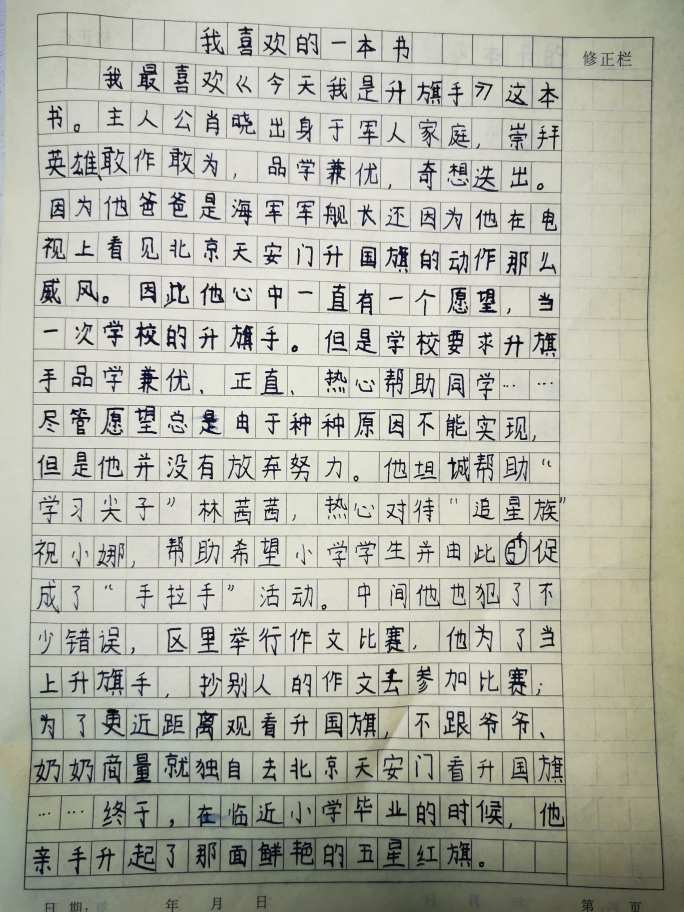 我喜欢的一本书
修正栏
我最喜欢《今天我是升旗手》这本
书。主人公肖晓出身于军人家庭，崇拜
英雄、敢作敢为，品学兼优，奇想迭出。
因为他爸爸是海军军舰长还因为他在电
视上看见北京天安门升国旗的动作那么
威风。因此他心中一直有一个愿望，当
一次学校的升旗手。但是学校要求升旗
手品学兼优、正直、热心帮助同学……
尽管愿望总是由于种种原因不能实现，
但是他并没有放弃努力。他坦城帮助“
学习尖子”林茜茜，热心对待“追星族”
祝小娜，帮助希望小学学生并由此促
成了“手拉手”活动。中间他也犯了不
少错误，区里举行作文比赛，他为了当
上升旗手，抄别人的作文去参加比赛；
为了更近距离观看升国旗，不跟爷爷、
奶奶商量就独自去北京天安门看升国旗
……终于，在临近小学毕业的时候，他
亲手升起了那面鲜艳的五星红旗。
日期： 年 月 日 第 页